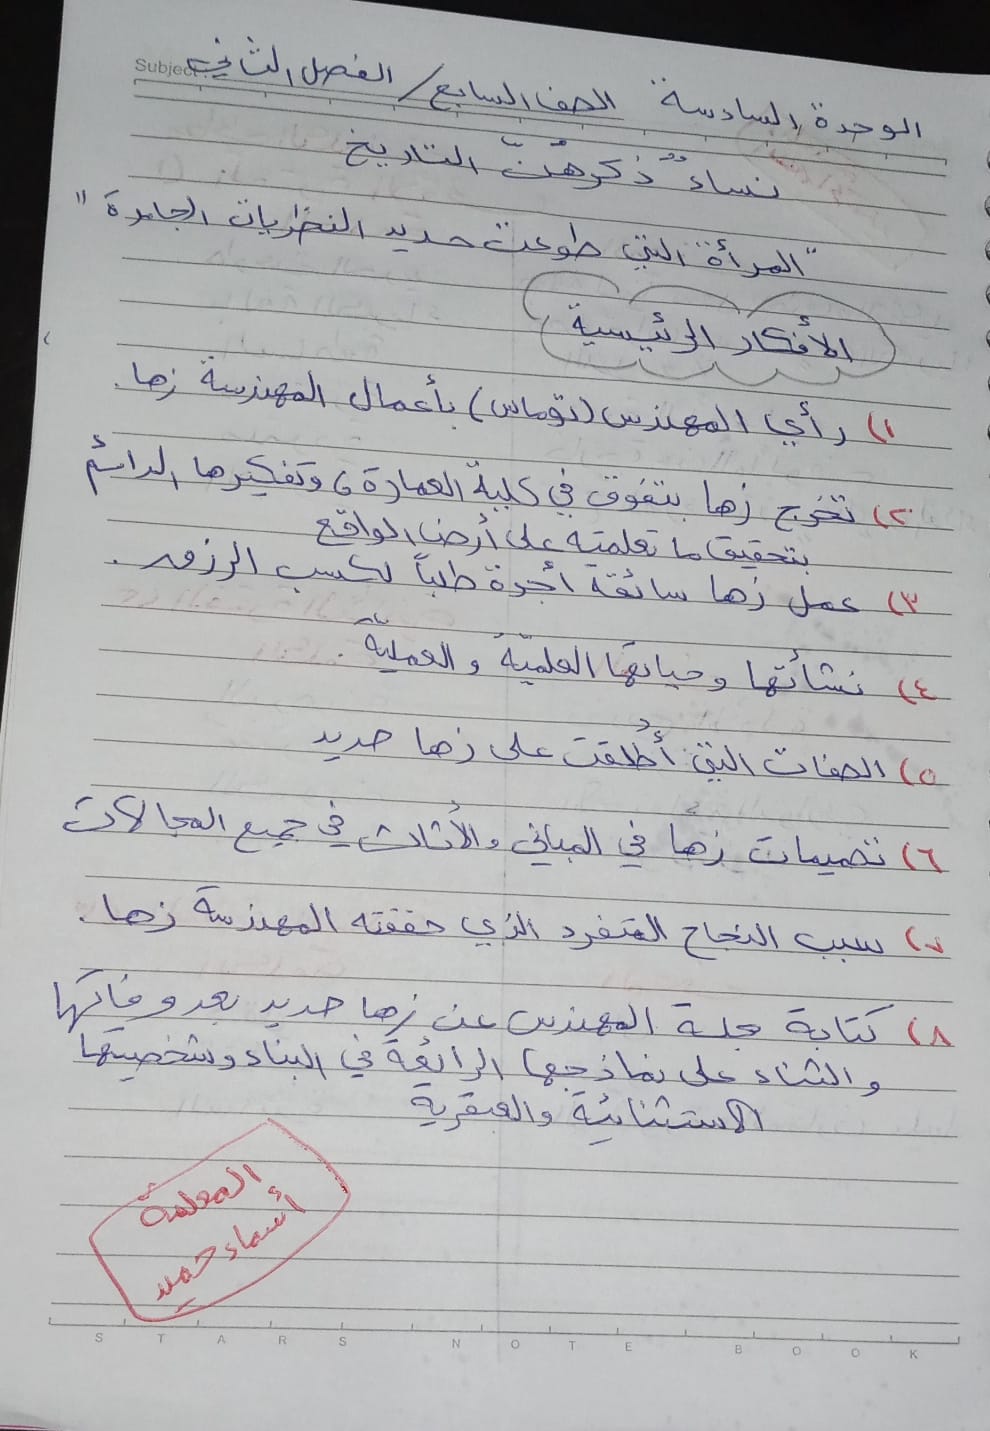 Subject
الوحدة السادسة الصف السابع / الفصل الثاني
نساءٌ ذكرهُنّ التاريخ
"المرأة التي طوعت حديد النظريات الجامدة"
الأفكار الرئيسية
١) رأي المهندس (توماس) بأعمال المهندسة زها.
٢) تخرج زها بتفوق في كلية العمارة، وتفكيرها الدائم
بتحقيق ما تعلمته على أرض الواقع
٣) عمل زها سائقة أجرة طلباً لكسب الرزق.
٤) نشأتها وحياتها العلميّة والعمليّة.
٥) الصفات التي أُطلقت على زها حديد
٦) تصميمات زها في المباني والأثاث في جميع المجالات
٧) سبب النجاح المتفرد الذي حققته المهندسة زها.
٨) كتابة مجلة المهندس عن زها حديد بعد وفاتها
والثناء على نماذجها الرائعة في البناء وشخصيتها
الاستثنائية والعبقرية
المعلمة
أسماء حميد
STARS NOTE BOOK